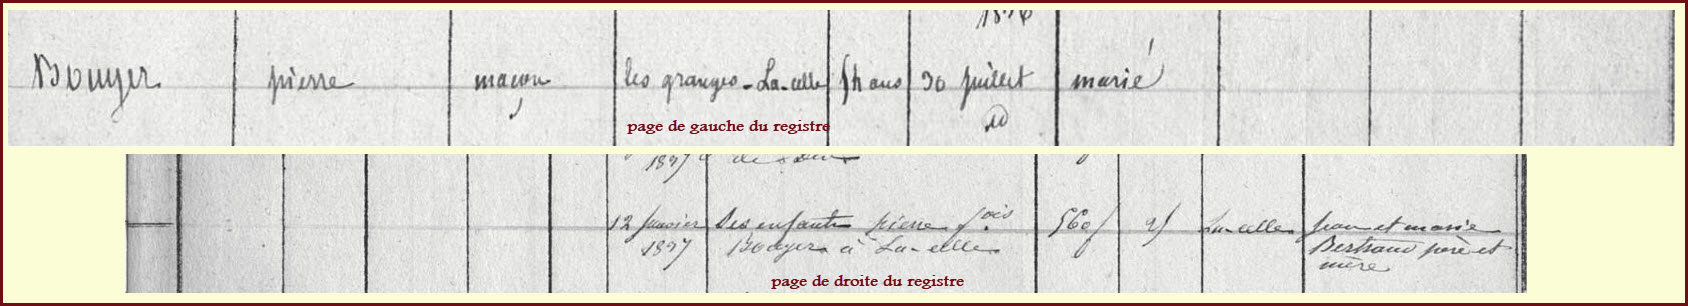 1896
Bouyer pierre maçon les granges-La-celle 54 ans 30 juillet marié
id
page de gauche du registre
1897
12 janvier Ses enfants pierre fois 560f La-celle Jean et marie
1897 Bouyer à La-celle Bertrand père et
mère
page de droite du registre